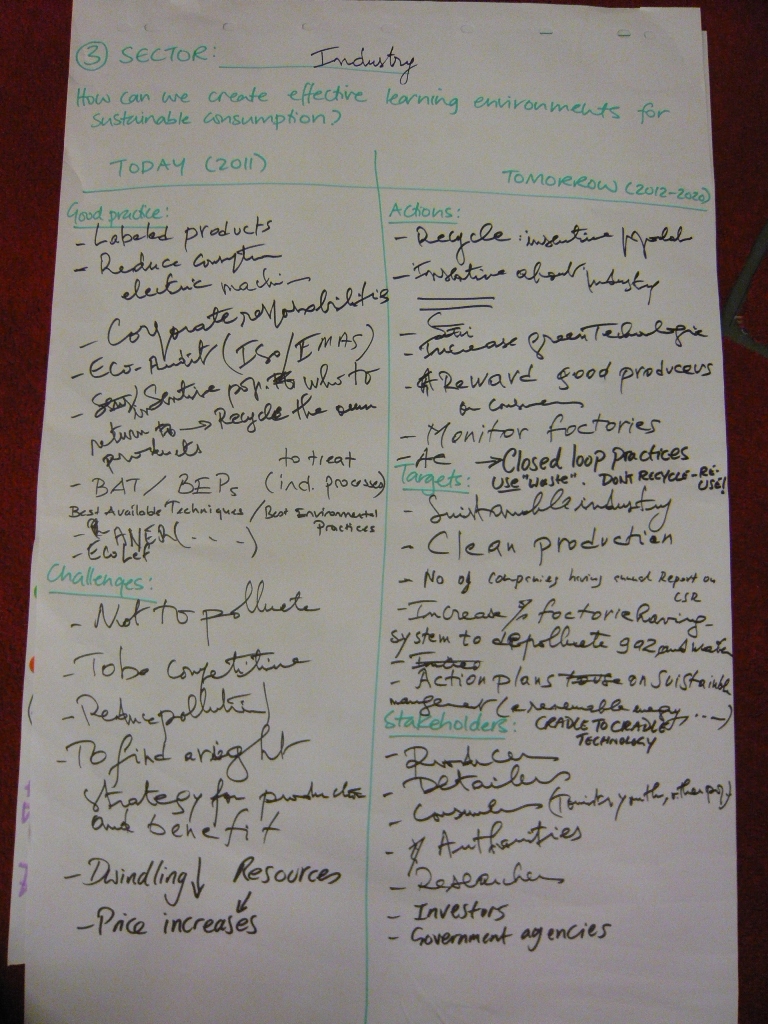 ③ SECTOR: Industry
How can we create effective learning environments for
sustainable consumption?
TODAY (2011)
Good practice:
- Labeled products
- Reduce
electric machin
- Corporate responsabilities
- Eco-Audit (ISO/EMAS)
who to
return to → Recycle the own
products
- BAT / BEPs (ind. processes)
to treat
Best Available Techniques / Best Environmental
Practices
- ANER (. . . .)
- EcoLef
Challenges:
- Not to polluete
- To be Competitive
- Reduce pollution
- To find a right
strategy for production
and benefit
- Dwindling ↓ Resources
- Price increases
TOMORROW (2012-2020)
Actions:
- Recycle: insentive model
- Insentive about industry
- Increase green Technologie
- Reward good producers
or consumers
- Monitor factories
→ Closed loop practices
USE "WASTE". DON'T RECYCLE-RE-
USE!
Targets:
- Suistainable industry
- Clean production
- No of Companies having Report on
CSR
- Increase % factorie having
system to depolluete gaz and water
- Action plans on Suistainable
mangement (renewable energy, ....)
CRADLE TO CRADLE
TECHNOLOGY
Stakeholders:
- Producers
- Detailers
- Consumers (Tourists, youth, other pop)
- Authorities
- Researchers
- Investors
- Government agencies